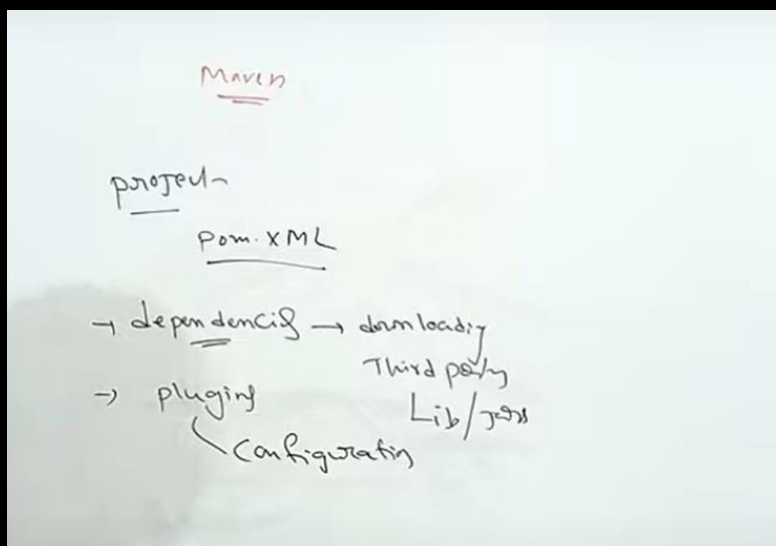 Maven
project
Pom.XML
→ dependencies → downloading
Third party
→ plugins
Lib/jars
Configuration